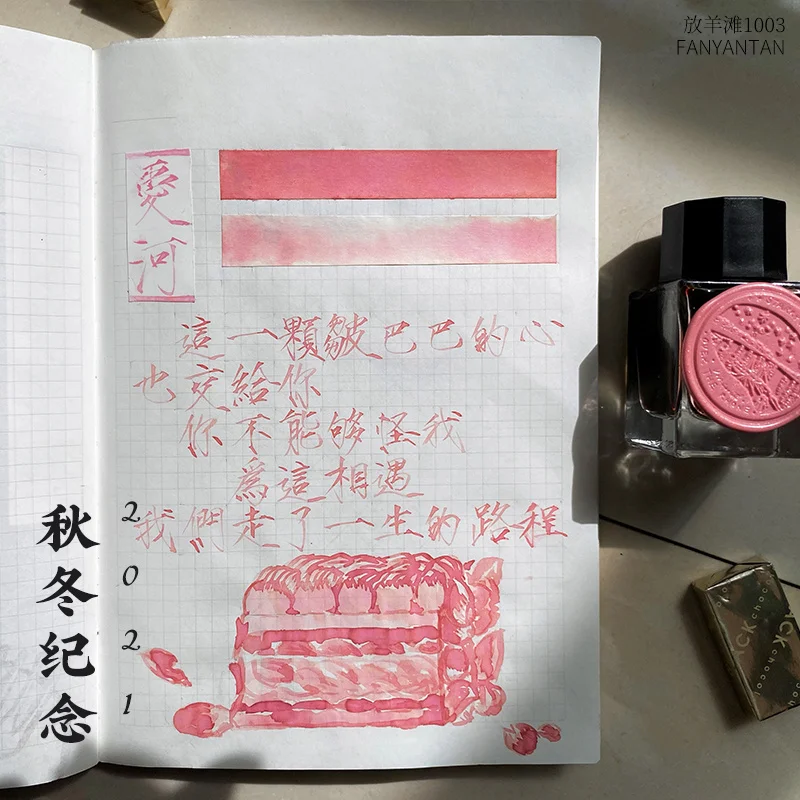 放羊滩1003
FANYANTAN
愛河
這一顆皺巴巴的心
也交給你
你不能够怪我
為這相遇
我們走了一生的路程
秋冬纪念
2021